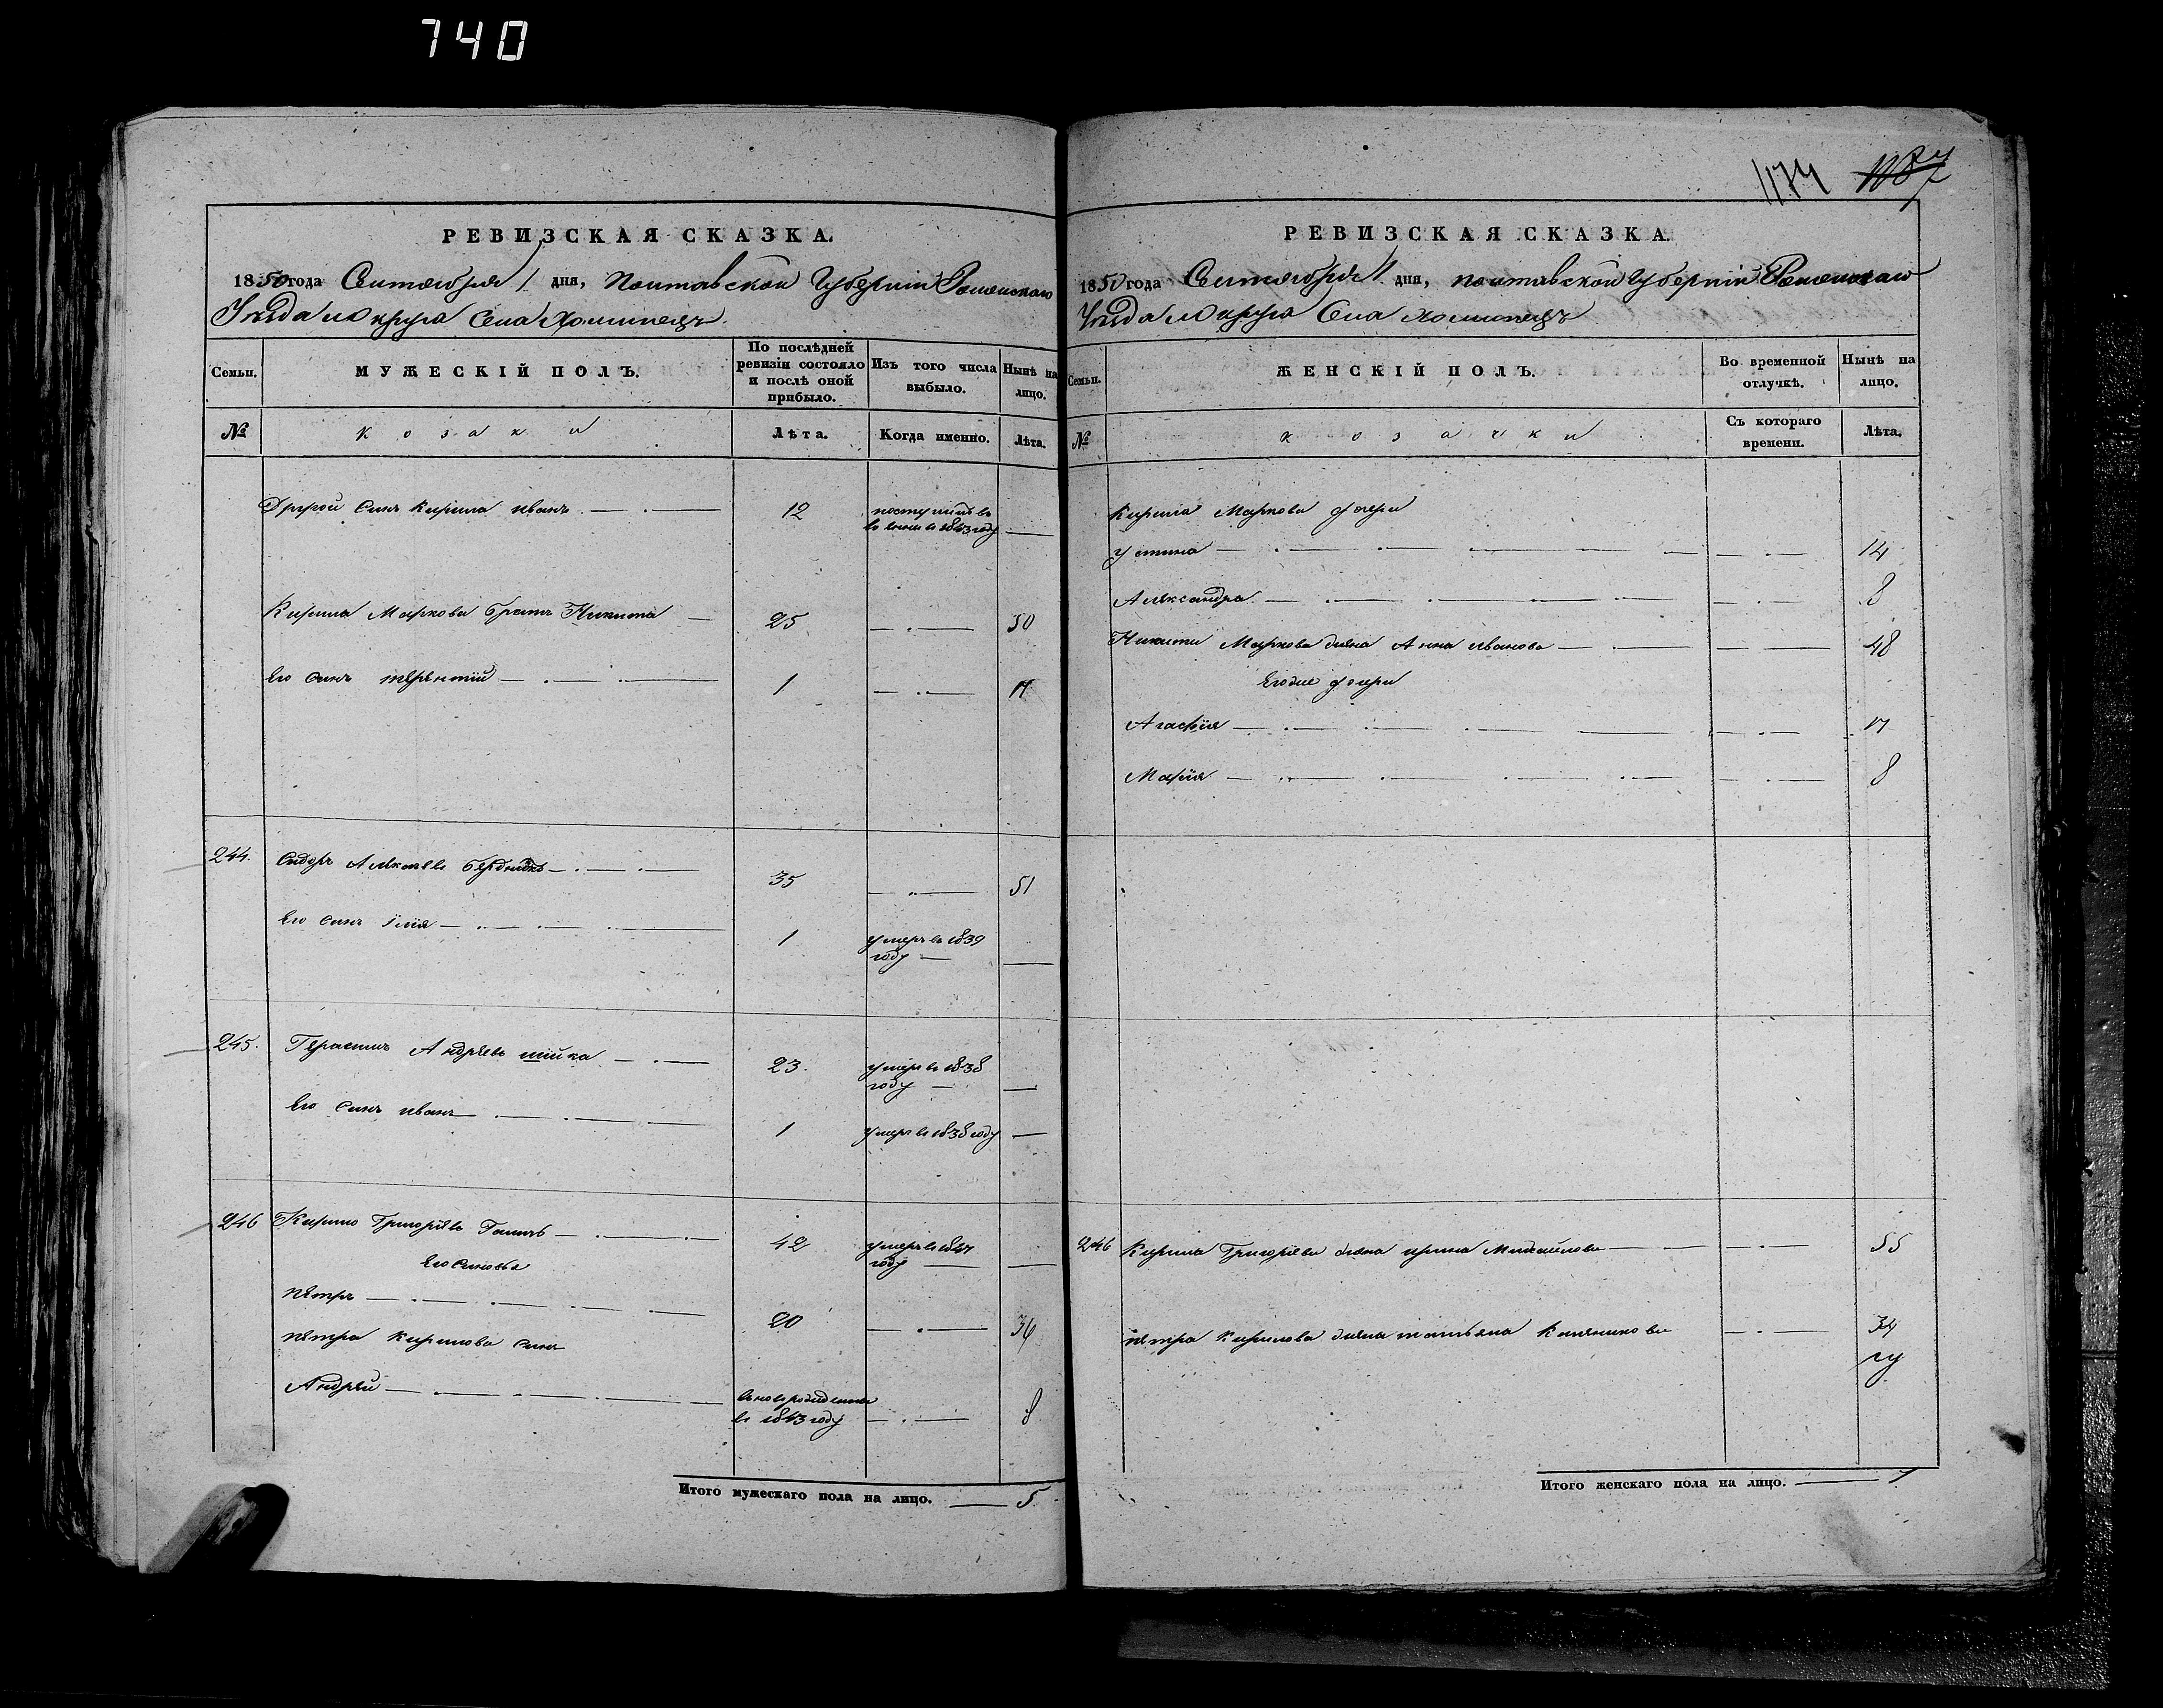 740
1174
РЕВИЗСКАЯ СКАЗКА.
1850 года Сентября 1 дня, Полтавской Губерніи Роменского
Уезда 10 округа Села Хоминецъ
Семьи.
МУЖЕСКІЙ ПОЛЪ.
По послѣдней ревизіи состояло и послѣ оной прибыло.
Изъ того числа выбыло.
Нынѣ на лицо.
№
козаки
Лѣта.
Когда именно.
Лѣта.
Другой Синъ Кирила иванъ 12 поступилъ въ
1843 году
Кирила Маркова братъ Никита 25 50
Его Синъ терентій 1 17
244. Сидоръ Алексѣевъ 35 51
Его Синъ Ілія 1 умеръ въ 1839
году
245. Герасимъ Андреевъ шійка 23. умеръ въ 1838
году
Его Синъ иванъ 1 умеръ въ 1838 году
246 Кирило Григоріевъ 42 умеръ въ
году
Его Синовья
Петръ 20 36
петра Кирилова Синъ
Андрей
въ 1843 году 8
Итого мужескаго пола на лицо. 5.
РЕВИЗСКАЯ СКАЗКА.
1850 года Сентября 1 дня, полтавской Губерніи Роменского
Уезда 10 округа Села Хоминецъ
Семьи.
ЖЕНСКІЙ ПОЛЪ.
Во временной отлучкѣ.
Нынѣ на лицо.
№
козачки
Съ котораго времени.
Лѣта.
Кирила Маркова дочери
устина 14
Александра 8
Никити Маркова жена Анна иванова 48
Егоже дочери
Агафія 17
Марія 8
246 Кирила Григоріева жена ирина Михайлова 55
петра Кирилова жена татьяна 34
Итого женскаго пола на лицо. 7